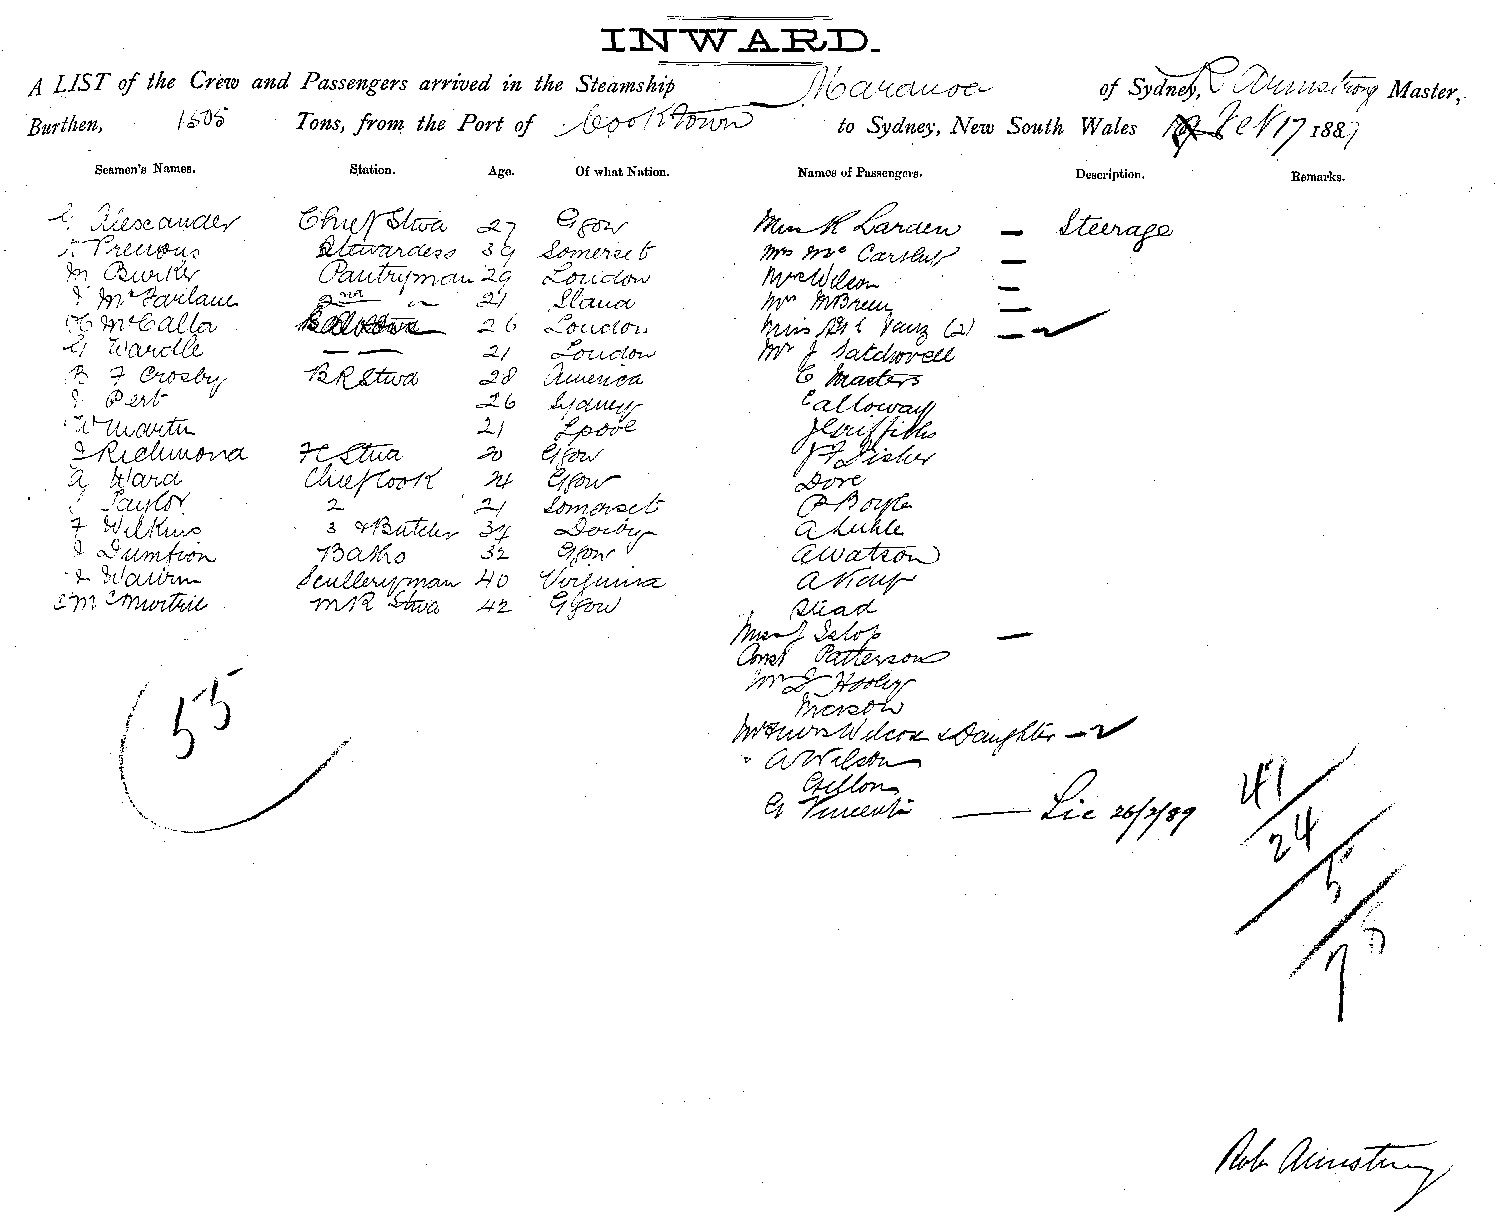 INWARD.
A LIST of the Crew and Passengers arrived in the Steamship Maranoa of Sydney, R Armstrong Master,
Burthen, 1505 Tons, from the Port of Cooktown to Sydney, New South Wales Feb 17 1889
Seamen's Names. Station. Age. Of what Nation. Names of Passengers. Description. Remarks.
Alexander Chief Stwd 27 Ggow Miss K Larden — Steerage
Previous Stewardess 39 Somerset Mrs Mc Carthy —
M Burke Pantryman 29 London Mrs Wilson —
J McFarlane 2nd " 21 Mrs McBreen —
McCalla 26 London Miss (2) —
G Wardle — — 21 London Mr J Satchwell
R F Crosby BR Stwd 28 America C Masters
J Pert 26 Sydney Calloway
W Martin 21 Lpool J Griffiths
J Richmond FC Stwd 20 Ggow J F Fisher
A Ward Chief Cook 24 Ggow Dore
Taylor 2 21 Somerset P Boyle
F Wilkins 3 & Butcher 34 Derby A
J Dumbon Baths 32 Ggow A Watson
J Sculleryman 40 Virginia A
McMurtrie MR Stwd 42 Ggow Mead
Miss J —
Const Patterson
Mr J Hooley
Merson
Mr & Mrs Wilcox & Daughter —
A Wilson
Gillon
G Vincent — Lic 26/2/89
55
41
24
5
75
Rob Armstrong